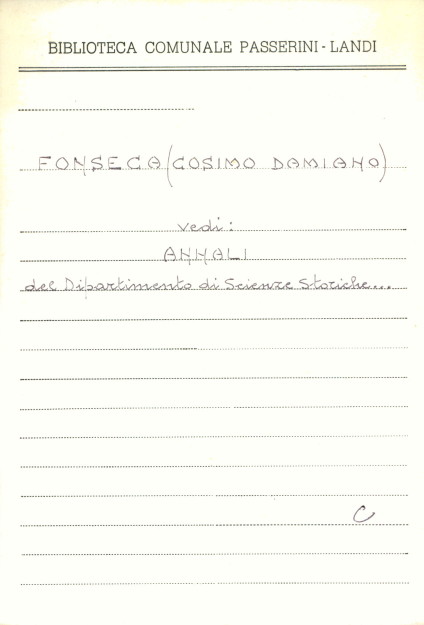 BIBLIOTECA COMUNALE PASSERINI-LANDI
FONSECA (COSIMO DAMIANO)
vedi:
ANNALI
del Dipartimento di Scienze Storiche...
C